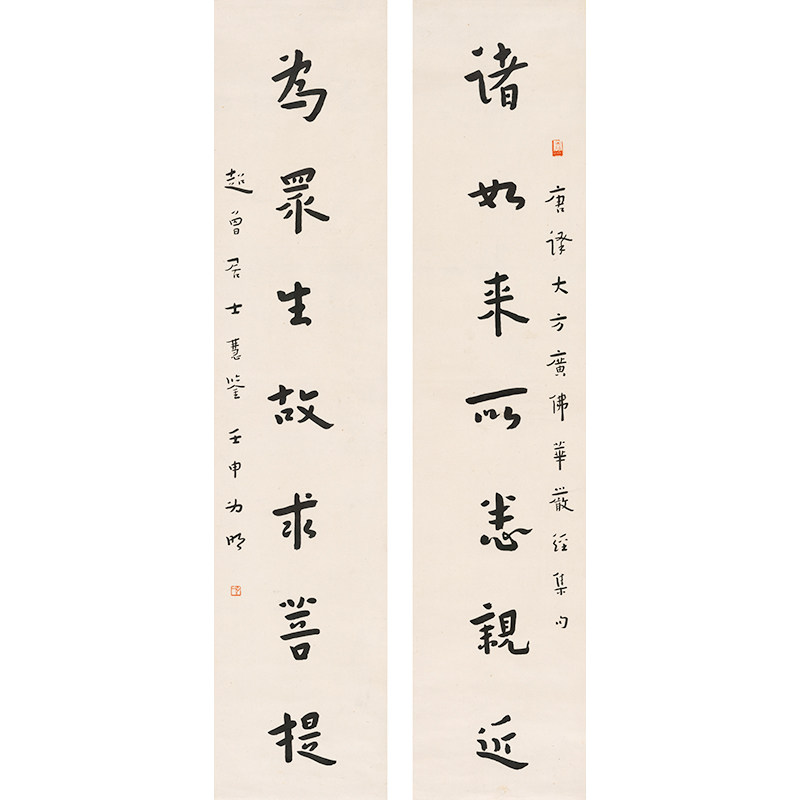 唐譯大方廣佛華嚴經集句
諸如来所悉親近
為眾生故求菩提
超曾居士慧鑒 壬申